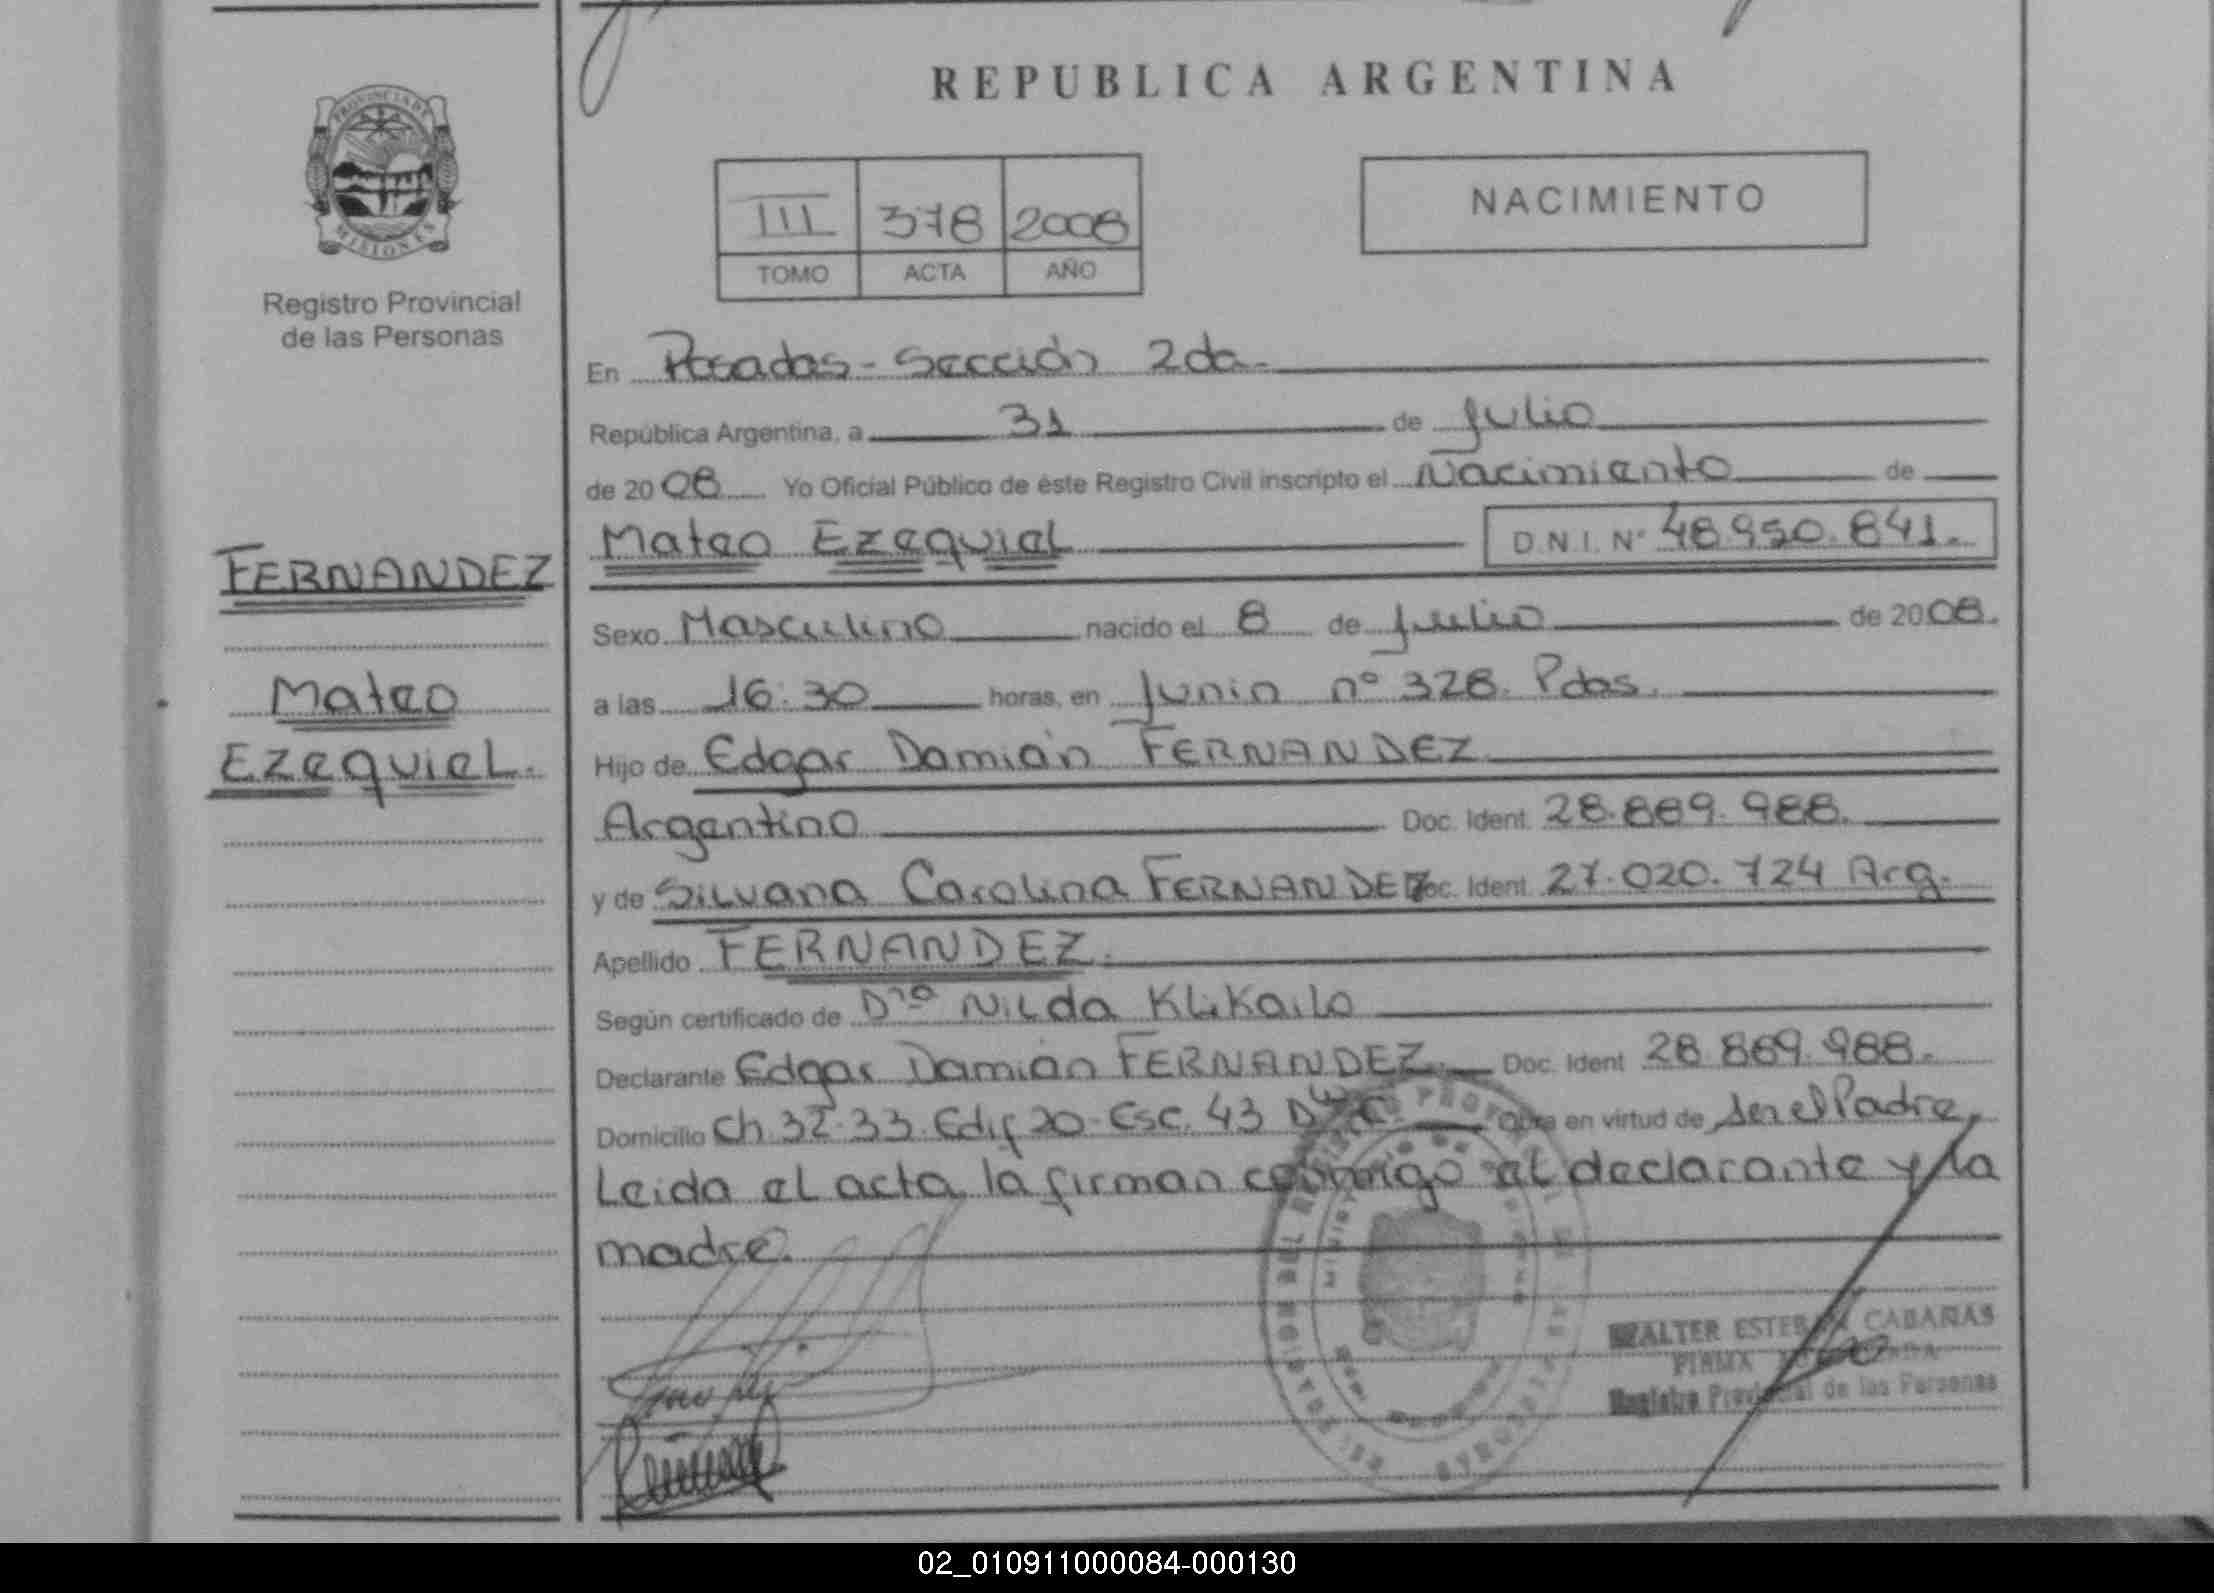 REPUBLICA ARGENTINA
PROVINCIA DE
MISIONES
Registro Provincial
de las Personas
III 378 2008
TOMO ACTA AÑO
NACIMIENTO
En Posadas - Sección 2da.
República Argentina, a 31 de Julio
de 2008 Yo Oficial Público de éste Registro Civil inscripto el Nacimiento de
Mateo Ezequiel D.N.I. Nº 48.950.841.
FERNANDEZ
Mateo
Ezequiel.
Sexo Masculino nacido el 8 de Julio de 2008.
a las 16:30 horas, en Junin nº 328. Pdas.
Hijo de Edgar Damián FERNANDEZ
Argentino Doc. Ident. 28.889.988.
y de Silvana Carolina FERNANDEZ Doc. Ident. 27.020.724 Arg.
Apellido FERNANDEZ.
Según certificado de Dra Nilda Klikailo
Declarante Edgar Damián FERNANDEZ. Doc. Ident. 28.889.988.
Domicilio Ch. 32-33. Edif 20 - Esc. 43 Obra en virtud de ser el Padre,
Leida el acta, la firman conmigo el declarante y la
madre.
WALTER ESTEBAN CABAÑAS
FIRMA AUTORIZADA
Registro Provincial de las Personas
02_010911000084-000130